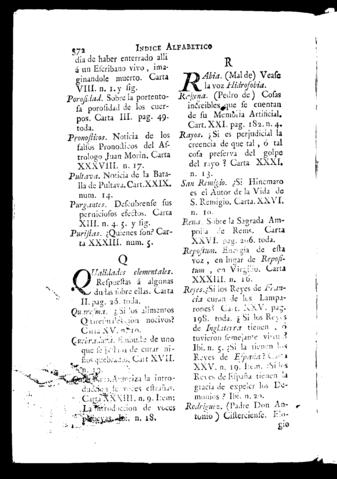 372 INDICE ALFABETICO
dia de haber enterrado alli
á un Escribano vivo, ima-
ginandole muerto. Carta
VIII. n. 1. y sig.
Porosidad. Sobre la portento-
sa porosidad de los cuer-
pos. Carta III. pag. 49.
toda.
Pronosticos. Noticia de los
falsos Pronosticos del As-
trologo Juan Morin. Carta
XXXVIII. n. 17.
Pultava. Noticia de la Bata-
lla de Pultava. Cart. XXIX.
num. 14.
Purgantes. Descubrense sus
perniciosos efectos. Carta
XIII. n. 4. 5. y sig.
Puristas. ¿Quienes son? Car-
ta XXXIII. num. 5.
Q
Qualidades elementales.
Respuestas á algunas
dudas sobre ellas. Carta
II. pag. 26. toda.
¿Si los alimentos
nocivo?
Carta XV. n. 10.
de uno
que se de curar ni-
ños quebrados. Cart XVII.
la intro-
duccion de voces estrañas.
Carta XXXIII. n. 9. Item:
La introduccion de voces
nuevas. Ibi n. 18.
R
Rabia. (Mal de) Vease
la voz Hidrofobia.
(Pedro de) Cosas
increibles que se cuentan
de su Memoria Artificial.
Cart. XXI. pag. 182. n. 4.
Rayos. ¿Si es perjudicial la
creencia de que tal, ó tal
cosa preserva del golpe
del rayo? Carta XXXI.
n. 13.
San Remigio. ¿Si Hincmaro
es el Autor de la Vida de
S. Remigio. Carta. XXVI.
n. 10.
Rena. Sobre la Sagrada Am-
polla de Rems. Carta
XXVI. pag. 206. toda.
Repostum. Energía de esta
voz, en lugar de Reposi-
tum, en Virgilio. Carta
XXXIII. n. 16.
Reyes. ¿Si los Reyes de Fran-
cia curan de los Lampa-
rones? Cart. XXV. pag.
198. toda. ¿Si los Reyes
de Inglaterra tienen, ó
tuvieron semejante virtud?
Ibi n. 5. ¿Si la tienen los
Reyes de España? Carta
XXV. n. 19. Item: ¿Si los
Reyes de España tienen la
gracia de expeler los De-
monios? Ibi n. 20.
Rodriguez. (Padre Don An-
tonio) Cisterciense. Elo-
gio